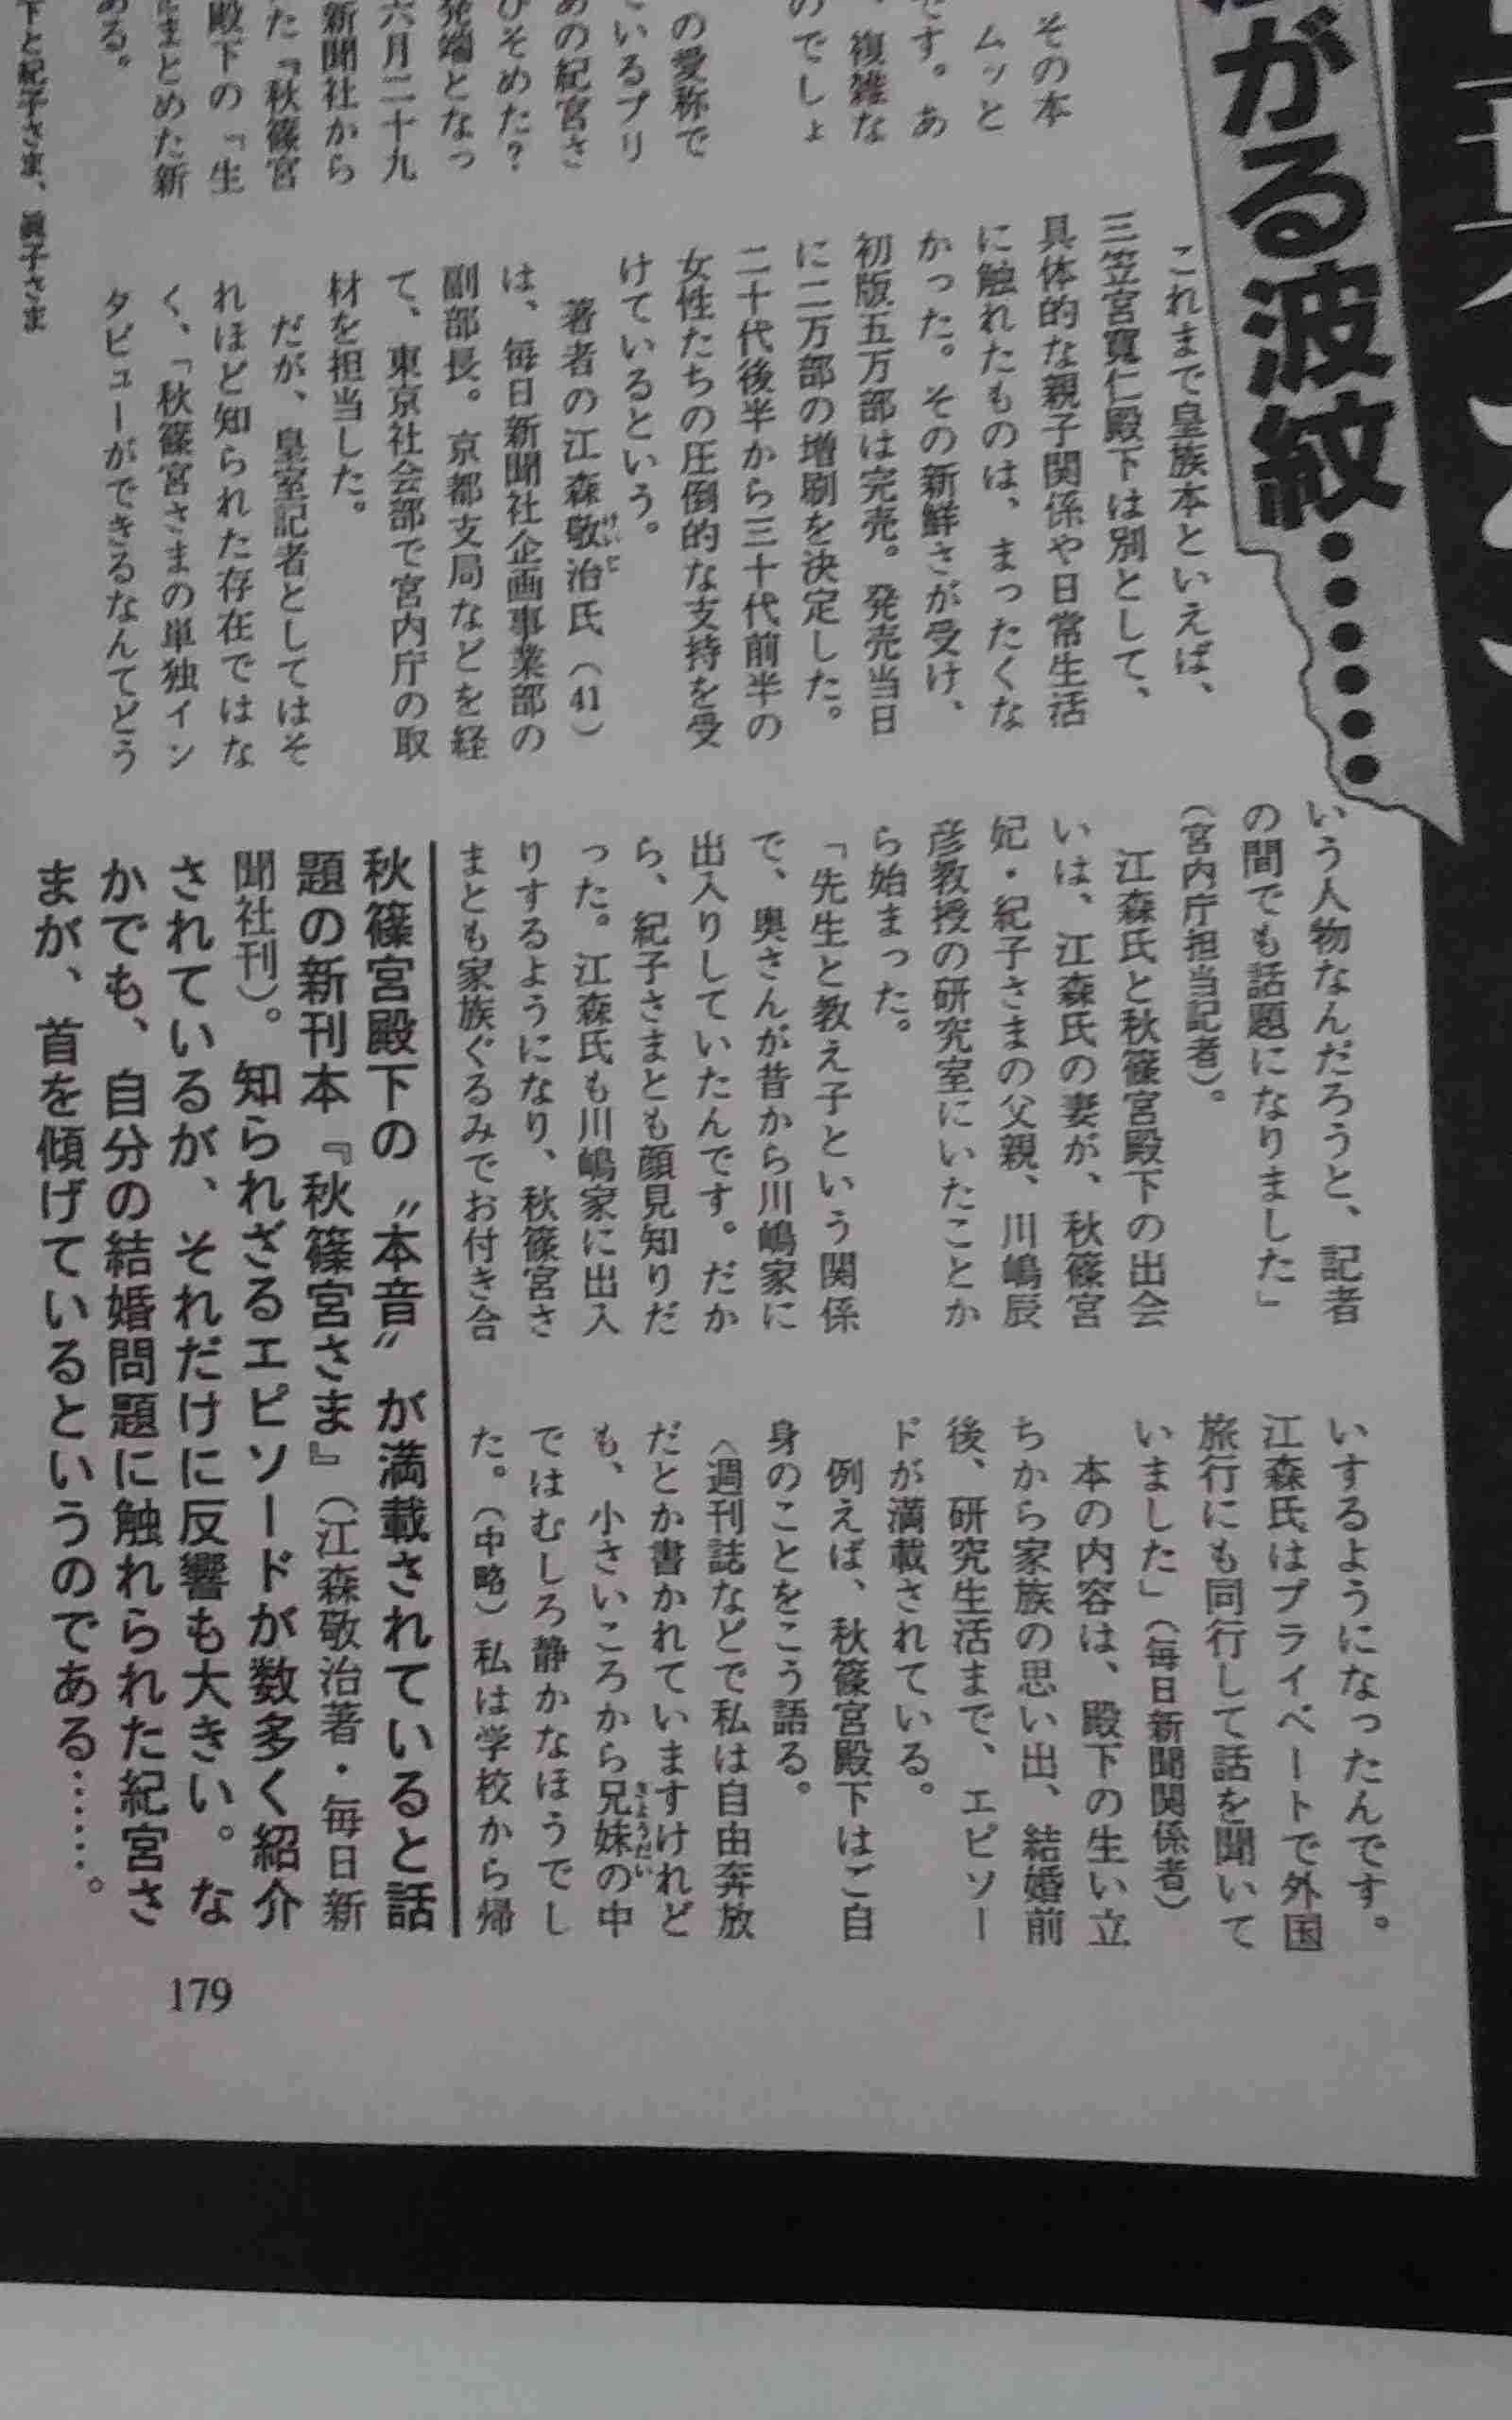 がる波紋……
その本
ムッと
です。あ
、複雑な
のでしょ
の愛称で
いるプリ
あの紀宮さ
びそめた？
発端となっ
六月二十九
新聞社から
た『秋篠宮
殿下の「生
まとめた新
ある。
下と紀子さま、眞子さま
これまで皇族本といえば、
三笠宮寬仁殿下は別として、
具体的な親子関係や日常生活
に触れたものは、まったくな
かった。その新鮮さが受け、
初版五万部は完売。発売当日
に二万部の増刷を決定した。
二十代後半から三十代前半の
女性たちの圧倒的な支持を受
けているという。
著者の江森敬治氏（41）
は、毎日新聞社企画事業部の
副部長。京都支局などを経
て、東京社会部で宮内庁の取
材を担当した。
だが、皇室記者としてはそ
れほど知られた存在ではな
く、「秋篠宮さまの単独イン
タビューができるなんてどう
いう人物なんだろうと、記者
の間でも話題になりました」
（宮内庁担当記者）。
江森氏と秋篠宮殿下の出会
いは、江森氏の妻が、秋篠宮
妃・紀子さまの父親、川嶋辰
彦教授の研究室にいたことか
ら始まった。
「先生と教え子という関係
で、奥さんが昔から川嶋家に
出入りしていたんです。だか
ら、紀子さまとも顔見知りだ
った。江森氏も川嶋家に出入
りするようになり、秋篠宮さ
まとも家族ぐるみでお付き合
いするようになったんです。
江森氏はプライベートで外国
旅行にも同行して話を聞いて
いました」（毎日新聞関係者）
本の内容は、殿下の生い立
ちから家族の思い出、結婚前
後、研究生活まで、エピソー
ドが満載されている。
例えば、秋篠宮殿下はご自
身のことをこう語る。
〈週刊誌などで私は自由奔放
だとか書かれていますけれど
も、小さいころから兄妹の中
ではむしろ静かなほうでし
た。（中略）私は学校から帰
秋篠宮殿下の〝本音〟が満載されていると話
題の新刊本『秋篠宮さま』（江森敬治著・毎日新
聞社刊）。知られざるエピソードが数多く紹介
されているが、それだけに反響も大きい。な
かでも、自分の結婚問題に触れられた紀宮さ
まが、首を傾げているというのである……。
179